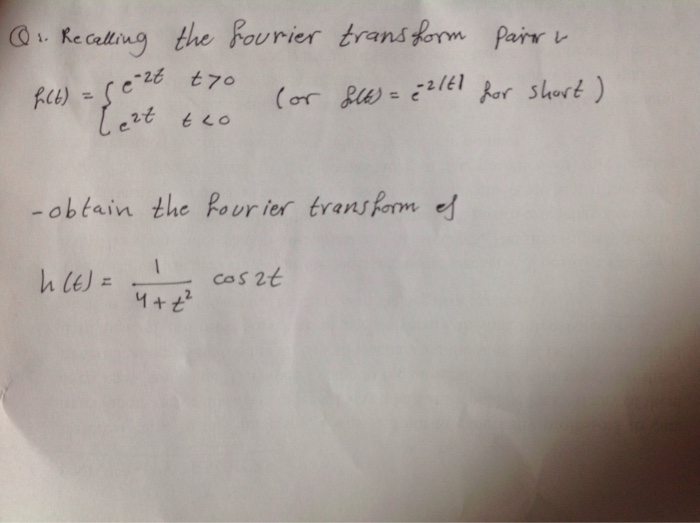 Q:. Recalling the Fourier transform pair
f(t) = { e^-2t t>0 (or f(t) = e^-2|t| for short)
e^2t t<0
- obtain the Fourier transform of
h(t) = 1/(4+t^2) cos 2t